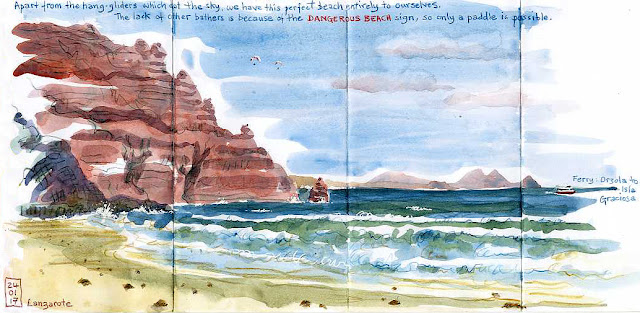 Apart from the hang-gliders which dot the sky, we have this perfect beach entirely to ourselves.
The lack of other bathers is because of the DANGEROUS BEACH sign, so only a paddle is possible.
Ferry: Orzola to
Isla
Graciosa
24
01
17
Lanzarote